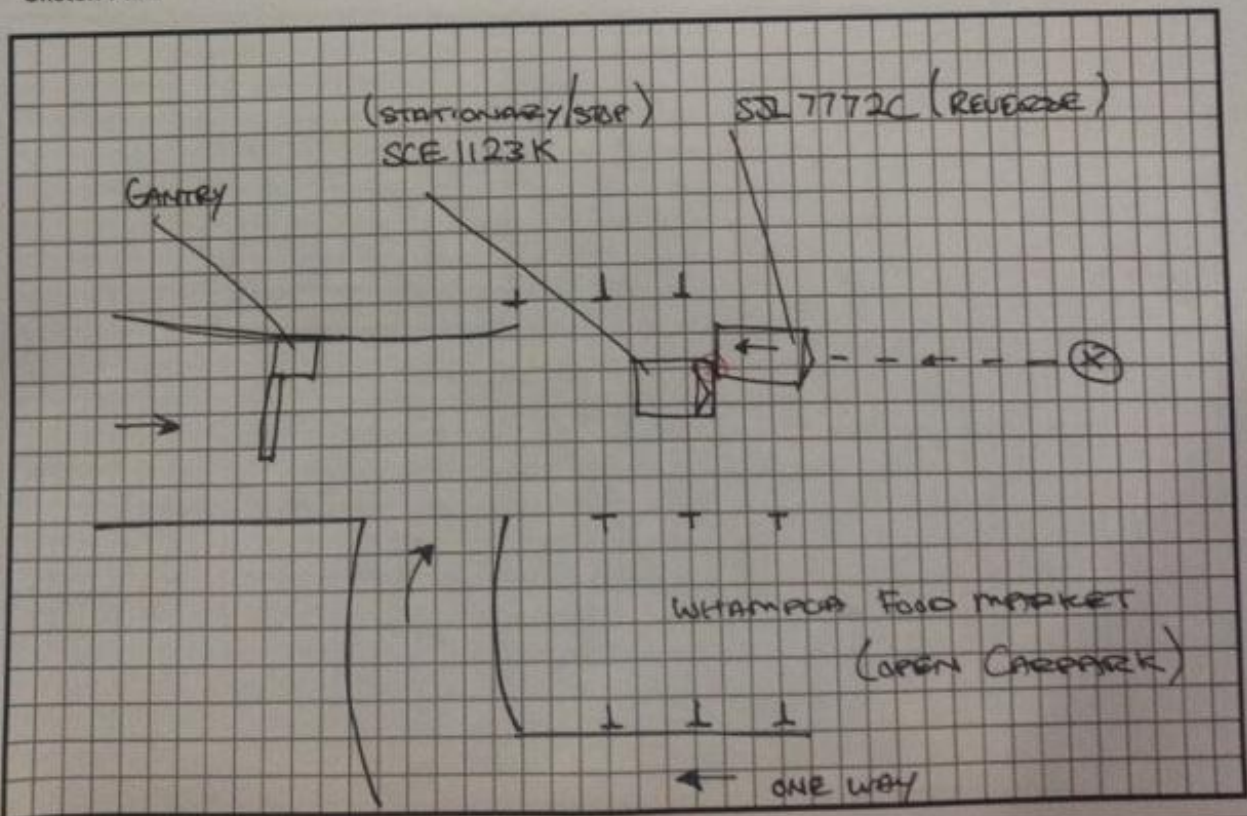 (STATIONARY/STOP)
SCE 1123K
SJL 7772C (REVERSE)
GANTRY
WHAMPOA FOOD MARKET
(OPEN CARPARK)
ONE WAY